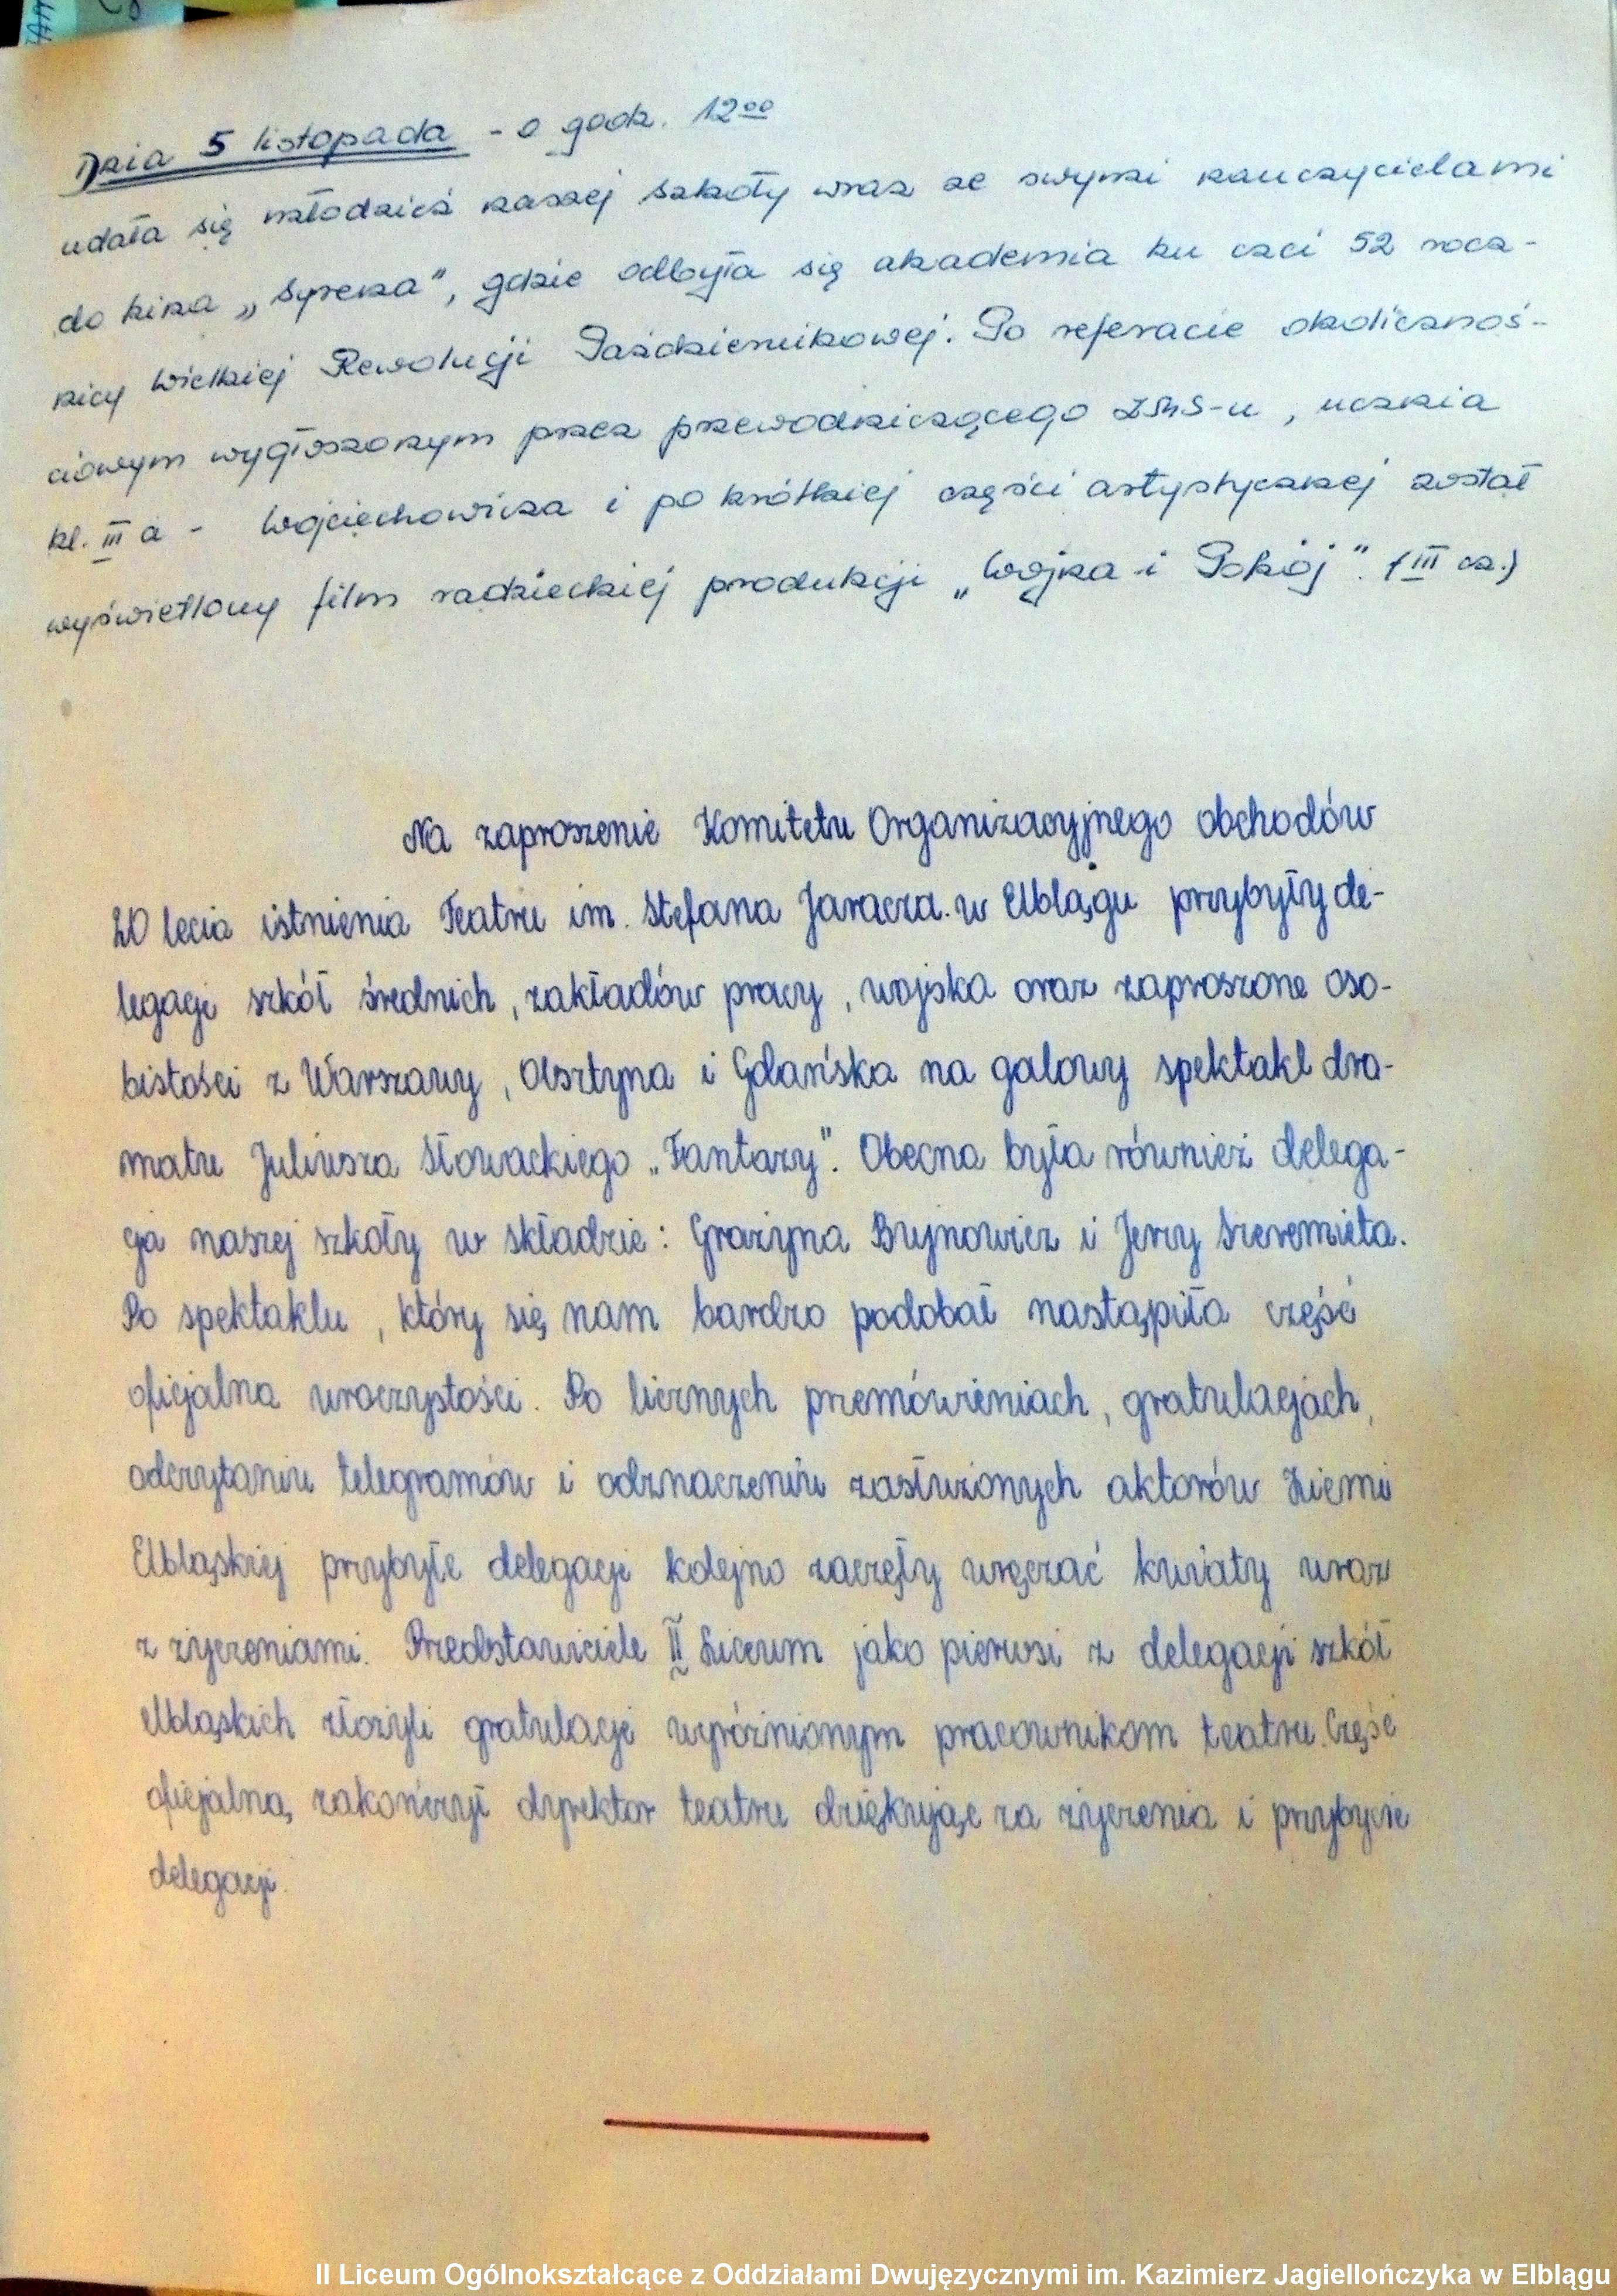 Dnia 5 listopada - o godz. 12⁰⁰
udała się młodzież naszej szkoły wraz ze swymi nauczycielami
do kina „Syrena", gdzie odbyła się akademia ku czci 52 rocz-
nicy Wielkiej Rewolucji Październikowej. Po referacie okolicznoś-
ciowym wygłoszonym przez przewodniczącego ZMS-u, ucznia
kl. III a - Wojciechowicza i po krótkiej części artystycznej został
wyświetlony film radzieckiej produkcji „Wojna i Pokój". (III cz.)
Na zaproszenie Komitetu Organizacyjnego obchodów
20 lecia istnienia Teatru im. Stefana Jaracza w Elblągu przybyły de-
legacje szkół średnich, zakładów pracy, wojska oraz zaproszone oso-
bistości z Warszawy, Olsztyna i Gdańska na galowy spektakl dra-
matu Juliusza Słowackiego „Fantazy". Obecna była również delega-
cja naszej szkoły w składzie: Grażyna Bujnowicz i Jerzy Szeremieta.
Po spektaklu, który się nam bardzo podobał nastąpiła część
oficjalna uroczystości. Po licznych przemówieniach, gratulacjach,
odczytaniu telegramów i odznaczeniu zasłużonych aktorów Ziemi
Elbląskiej przybyłe delegacje kolejno zaczęły wręczać kwiaty wraz
z życzeniami. Przedstawiciele II Liceum jako pierwsi z delegacji szkół
elbląskich złożyli gratulacje wyróżnionym pracownikom teatru. Część
oficjalną zakończył dyrektor teatru dziękując za życzenia i przybycie
delegacji.
II Liceum Ogólnokształcące z Oddziałami Dwujęzycznymi im. Kazimierz Jagiellończyka w Elblągu